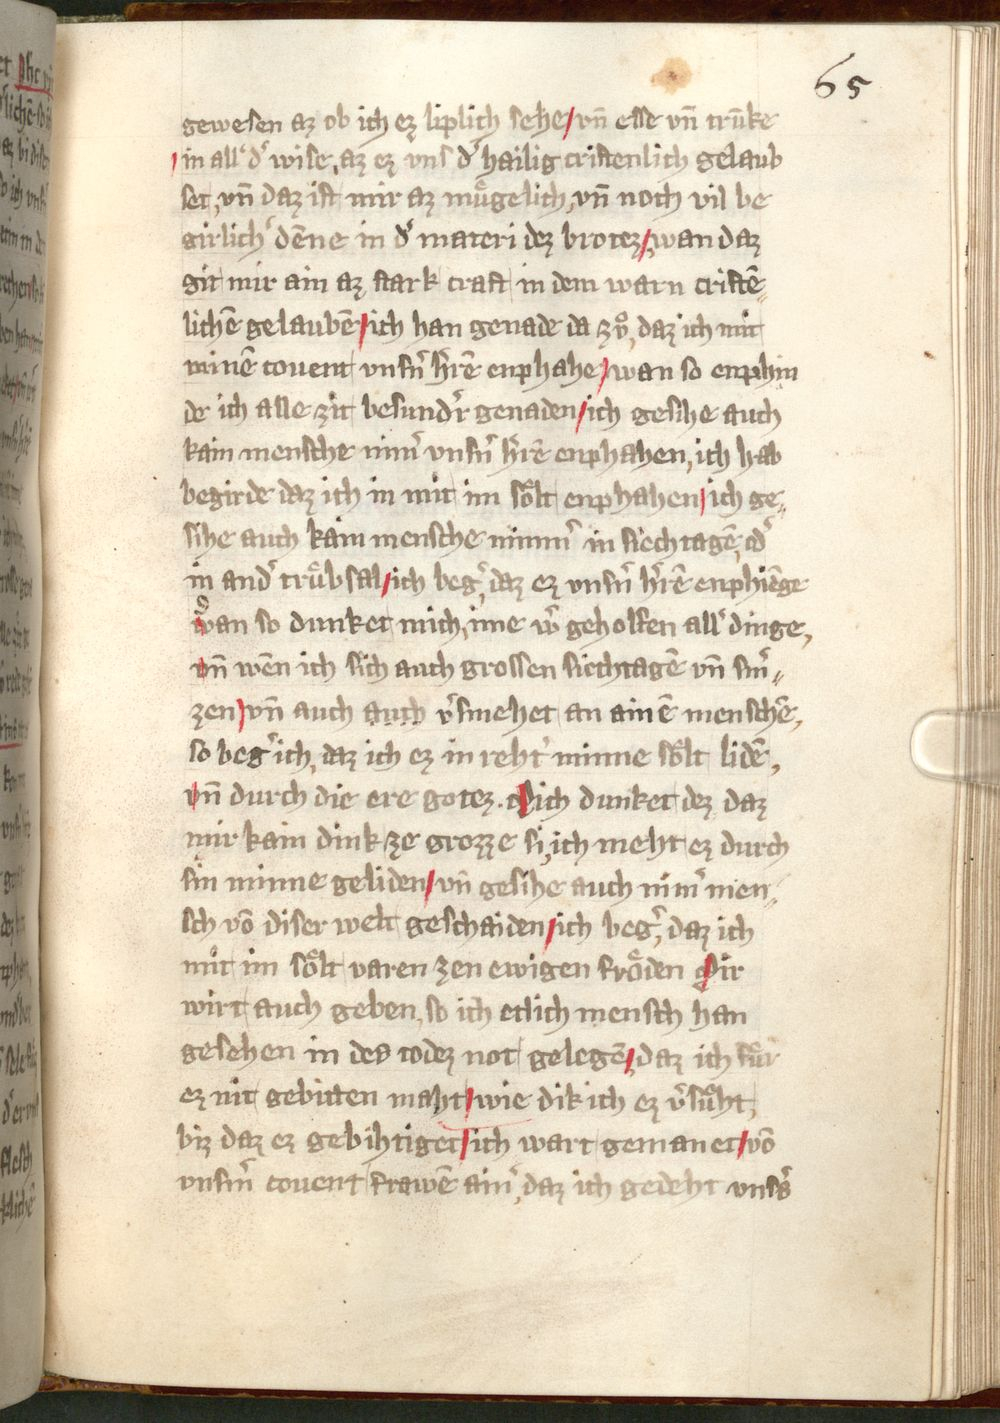 65
gewesen az ob ich ez liplich sehe / vn̄ esse vn̄ trūke
/ in all' d' wise, az ez vns d' hailig cristenlich gelaub
set, vn̄ daz ist mir az muͤgelich, vn̄ noch vil be
girlich' dēne in d' materi dez brotez / wan daz
git mir ain az stark craft in dem warn cristē-
lichē gelaubē / ich han genade da zuͦ, daz ich mit
minē couent vnsm̄ h'rē enphahe / wan so enphin
de ich alle zit besund'r genaden / ich gesihe auch
kain mensche nim' vnsn̄ h'rē enphahen, ich hab
begirde daz ich in mit im soͤlt enphahen / ich ge-
sihe auch kain mensche nimm' in siechtagē, od'
in and' truͤbsal / ich beg', daz ez vnsn̄ h'rē enphiēge
wan so dunket mich, ime w' geholfen all' dinge,
vn̄ wēn ich sich auch grossen siechtagē vn̄ sm'-
zen / vn̄ auch auch v'smehet an ainē menschē,
so beg' ich, daz ich ez in reht' minne soͤlt lidē,
vn̄ durch die ere gotez. Mich dunket dez daz
mir kain dink ze grozze si, ich meht ez durch
sin minne geliden / vn̄ gesihe auch nim' men-
sch vō diser welt geschaiden / ich beg', daz ich
mit im soͤlt varen zen ewigen froͤden Mir
wirt auch geben, so ich etlich mensch han
gesehen in des todez not gelegē, daz ich fuͤr
ez nit gebitten maht / wie dik ich ez v'suͦht,
biz daz ez gebihtiget / ich wart gemanet / vō
vnsm̄ couent frawē ain', daz ich gedeht vns's